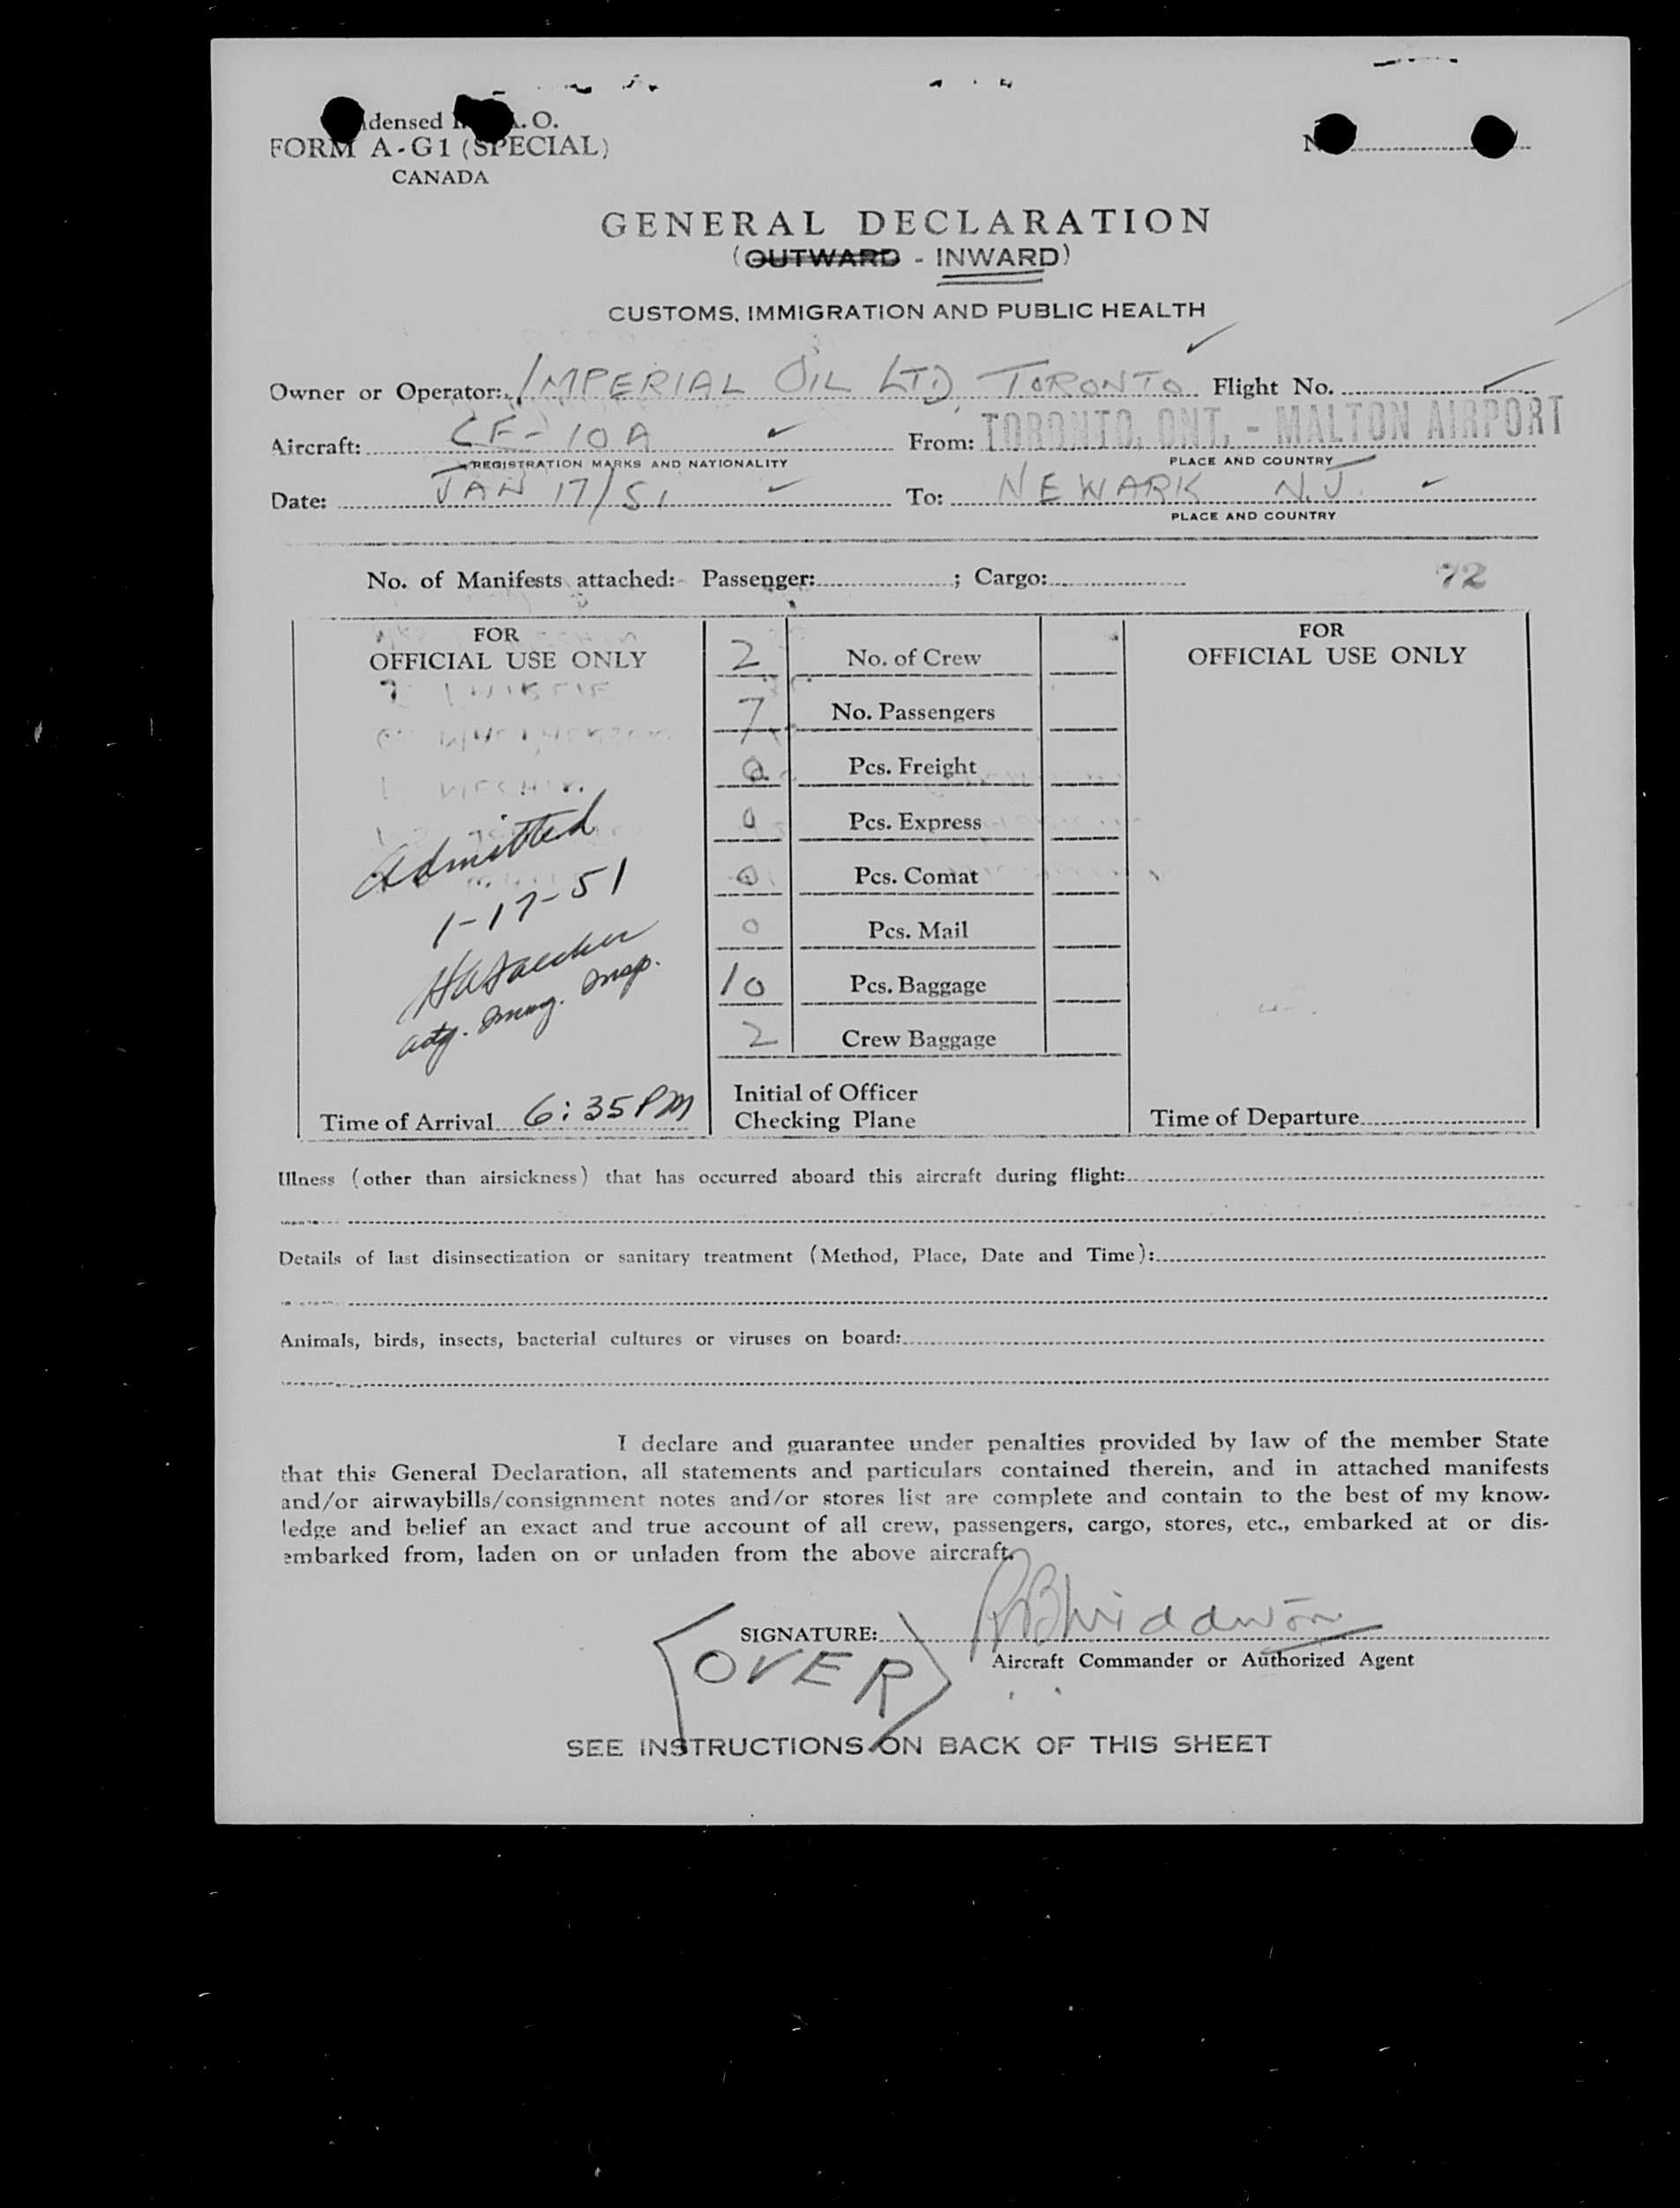 densed I . O.
FORM A-G1 (SPECIAL)
CANADA
GENERAL DECLARATION
(OUTWARD - INWARD)
CUSTOMS, IMMIGRATION AND PUBLIC HEALTH
Owner or Operator: IMPERIAL OIL LTD, TORONTO Flight No.
Aircraft: CF-IOA From: TORONTO, ONT. - MALTON AIRPORT
REGISTRATION MARKS AND NATIONALITY PLACE AND COUNTRY
Date: JAN 17/51 To: NEWARK N.J.
PLACE AND COUNTRY
No. of Manifests attached:- Passenger: ; Cargo: 72
FOR
OFFICIAL USE ONLY
2 No. of Crew
7 No. Passengers
0 Pcs. Freight
0 Pcs. Express
0 Pcs. Comat
0 Pcs. Mail
10 Pcs. Baggage
2 Crew Baggage
Admitted
1-17-51
actg. Immg. Insp.
Time of Arrival 6:35PM
Initial of Officer
Checking Plane
FOR
OFFICIAL USE ONLY
Time of Departure
Illness (other than airsickness) that has occurred aboard this aircraft during flight:
Details of last disinsectization or sanitary treatment (Method, Place, Date and Time):
Animals, birds, insects, bacterial cultures or viruses on board:
I declare and guarantee under penalties provided by law of the member State
that this General Declaration, all statements and particulars contained therein, and in attached manifests
and/or airwaybills/consignment notes and/or stores list are complete and contain to the best of my know-
ledge and belief an exact and true account of all crew, passengers, cargo, stores, etc., embarked at or dis-
embarked from, laden on or unladen from the above aircraft.
SIGNATURE:
Aircraft Commander or Authorized Agent
OVER
SEE INSTRUCTIONS ON BACK OF THIS SHEET